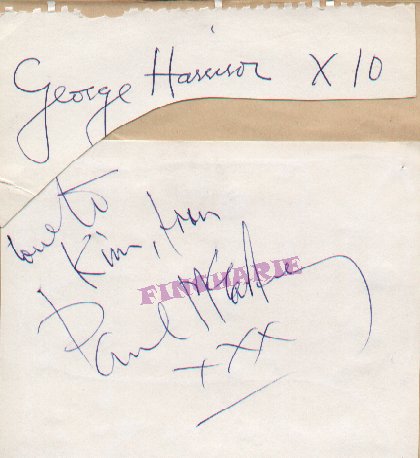 George Harrison X 10
love to
Kim, from
FINKHARIE
Paul McCartney
xxx